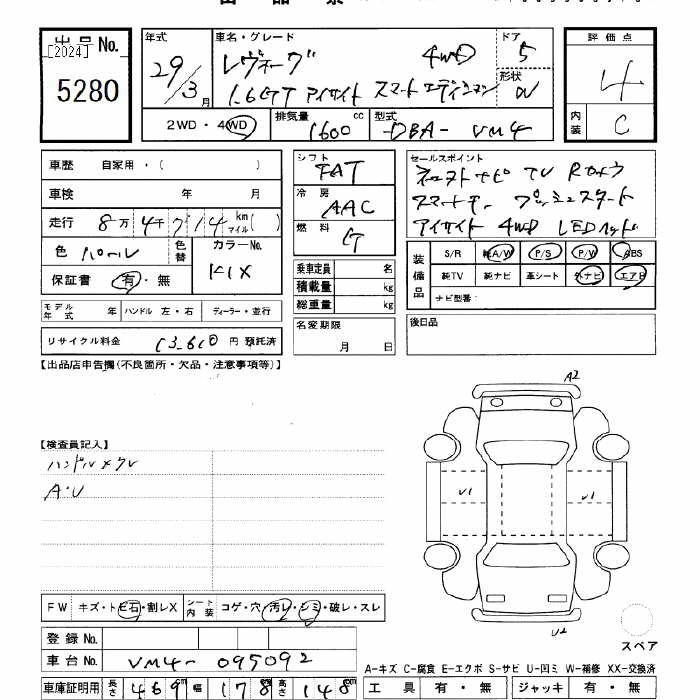 出品No.
[2024]
5280
年式
29/3月
車名・グレード
レヴォーグ 4WD
1.6GT アイサイト スマートエディション
ドア
5
形状
W
評価点
4
内装
C
2WD・4WD
排気量
1600cc
型式
-DBA- VM4
車歴 自家用・( )
車検 年 月
走行 8万4千 km マイル( )
色 パール
色替
カラーNo.
K1X
保証書 有・無
モデル年式 年
ハンドル 左・右
ディーラー・並行
リサイクル料金 13,610 円 預託済
シフト
FAT
冷房
AAC
燃料
G
乗車定員 名
積載量 kg
総重量 kg
名変期限
月 日
セールスポイント
TV Rカメラ
スマートキー プッシュスタート
アイサイト 4WD LEDヘッド
装備品
S/R 純A/W P/S P/W ABS
純TV 純ナビ 革シート 外ナビ エアB
ナビ型番:
後日品
【出品店申告欄(不良箇所・欠品・注意事項等)】
【検査員記入】
ハンドルスレ
A・U
A2
U1
U1
U2
スペア
FW キズ・トビ石・割レX
シート内装 コゲ・穴・汚レ・シミ・破レ・スレ
登録No.
車台No. VM4-095092
車庫証明用 長さ 469cm 幅 178cm 高さ 148cm
A-キズ C-腐食 E-エクボ S-サビ U-凹ミ W-補修 XX-交換済
工具 有・無 ジャッキ 有・無